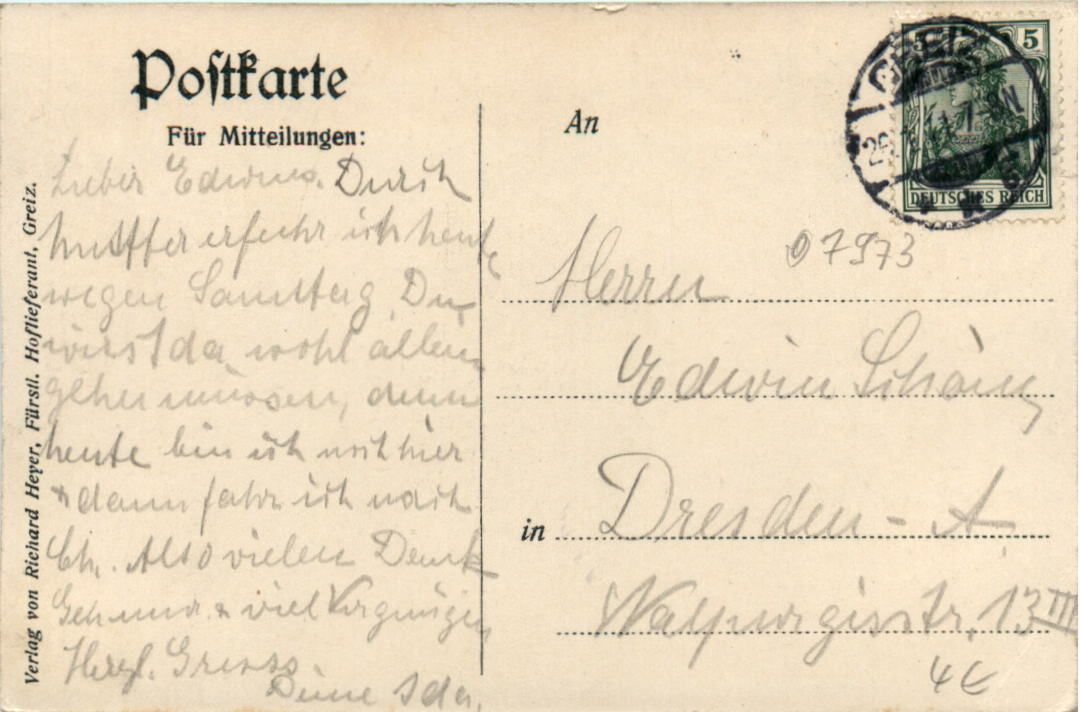 Postkarte
Für Mitteilungen:
An
in
Verlag von Richard Heyer, Fürstl. Hoflieferant, Greiz.
5 5
DEUTSCHES REICH
GREIZ
07973
Lieber Edwin. Durch
erfuhr ich heute
wegen Samstag. Du
wirst da wohl allein
gehen müssen, denn
heute bin ich noch hier
& dann fahr ich nach
Ch. Also vielen Dank
& viel Vergnügen
Herzl. Gruss.
Deine Ida.
Herrn
Edwin
Dresden-A.
Walpurgisstr. 13 III
4€